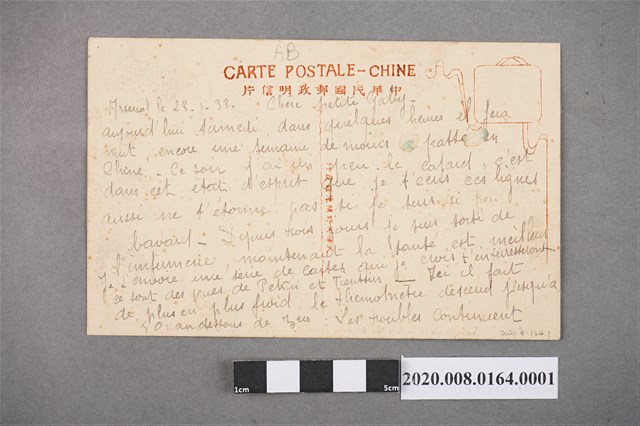 AB
CARTE POSTALE-CHINE
中華民國郵政明信片
le 28.1.33. Chère petite Gaby -
aujourd'hui samedi, dans quelques heures il fera
nuit, encore une semaine de moins à passer en
Chine - Ce soir j'ai un peu le cafard, c'est
dans cet état d'esprit que je t'écris ces lignes
aussi ne t'étonne pas si je suis si peu
bavard - Depuis trois jours je suis sorti de
l'infirmerie, maintenant la santé est meilleur
Je t'envoie une série de cartes que je crois t'intéresseront
ce sont des vues de Pékin et Tientsin - Ici il fait
de plus en plus froid le thermomètre descend jusqu'à
au dessous de zéro - Les troubles continuent
1cm
5cm
2020.008.0164.0001